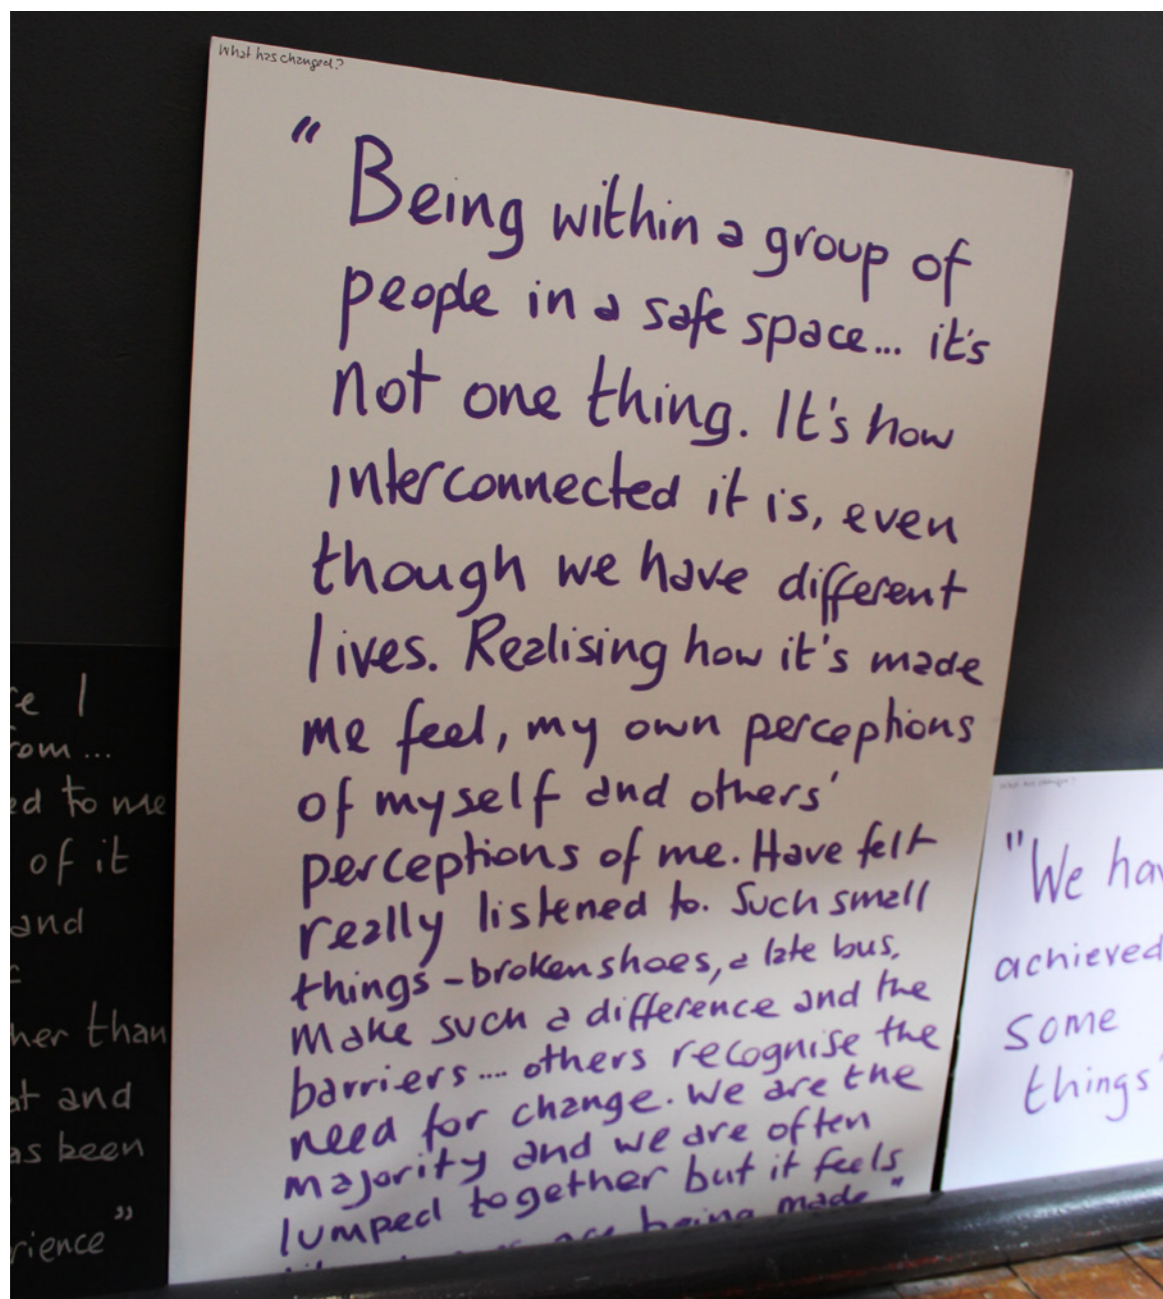 What has changed?
" Being within a group of
people in a safe space... it's
not one thing. It's how
interconnected it is, even
though we have different
lives. Realising how it's made
me feel, my own perceptions
of myself and others'
perceptions of me. Have felt
really listened to. Such small
things - broken shoes, a late bus,
make such a difference and the
barriers.... others recognise the
need for change. We are the
majority and we are often
lumped together but it feels
being made"
e I
om ...
ed to me
of it
and
her than
at and
as been
rience"
What has changed?
"We hav
achieved
some
things"